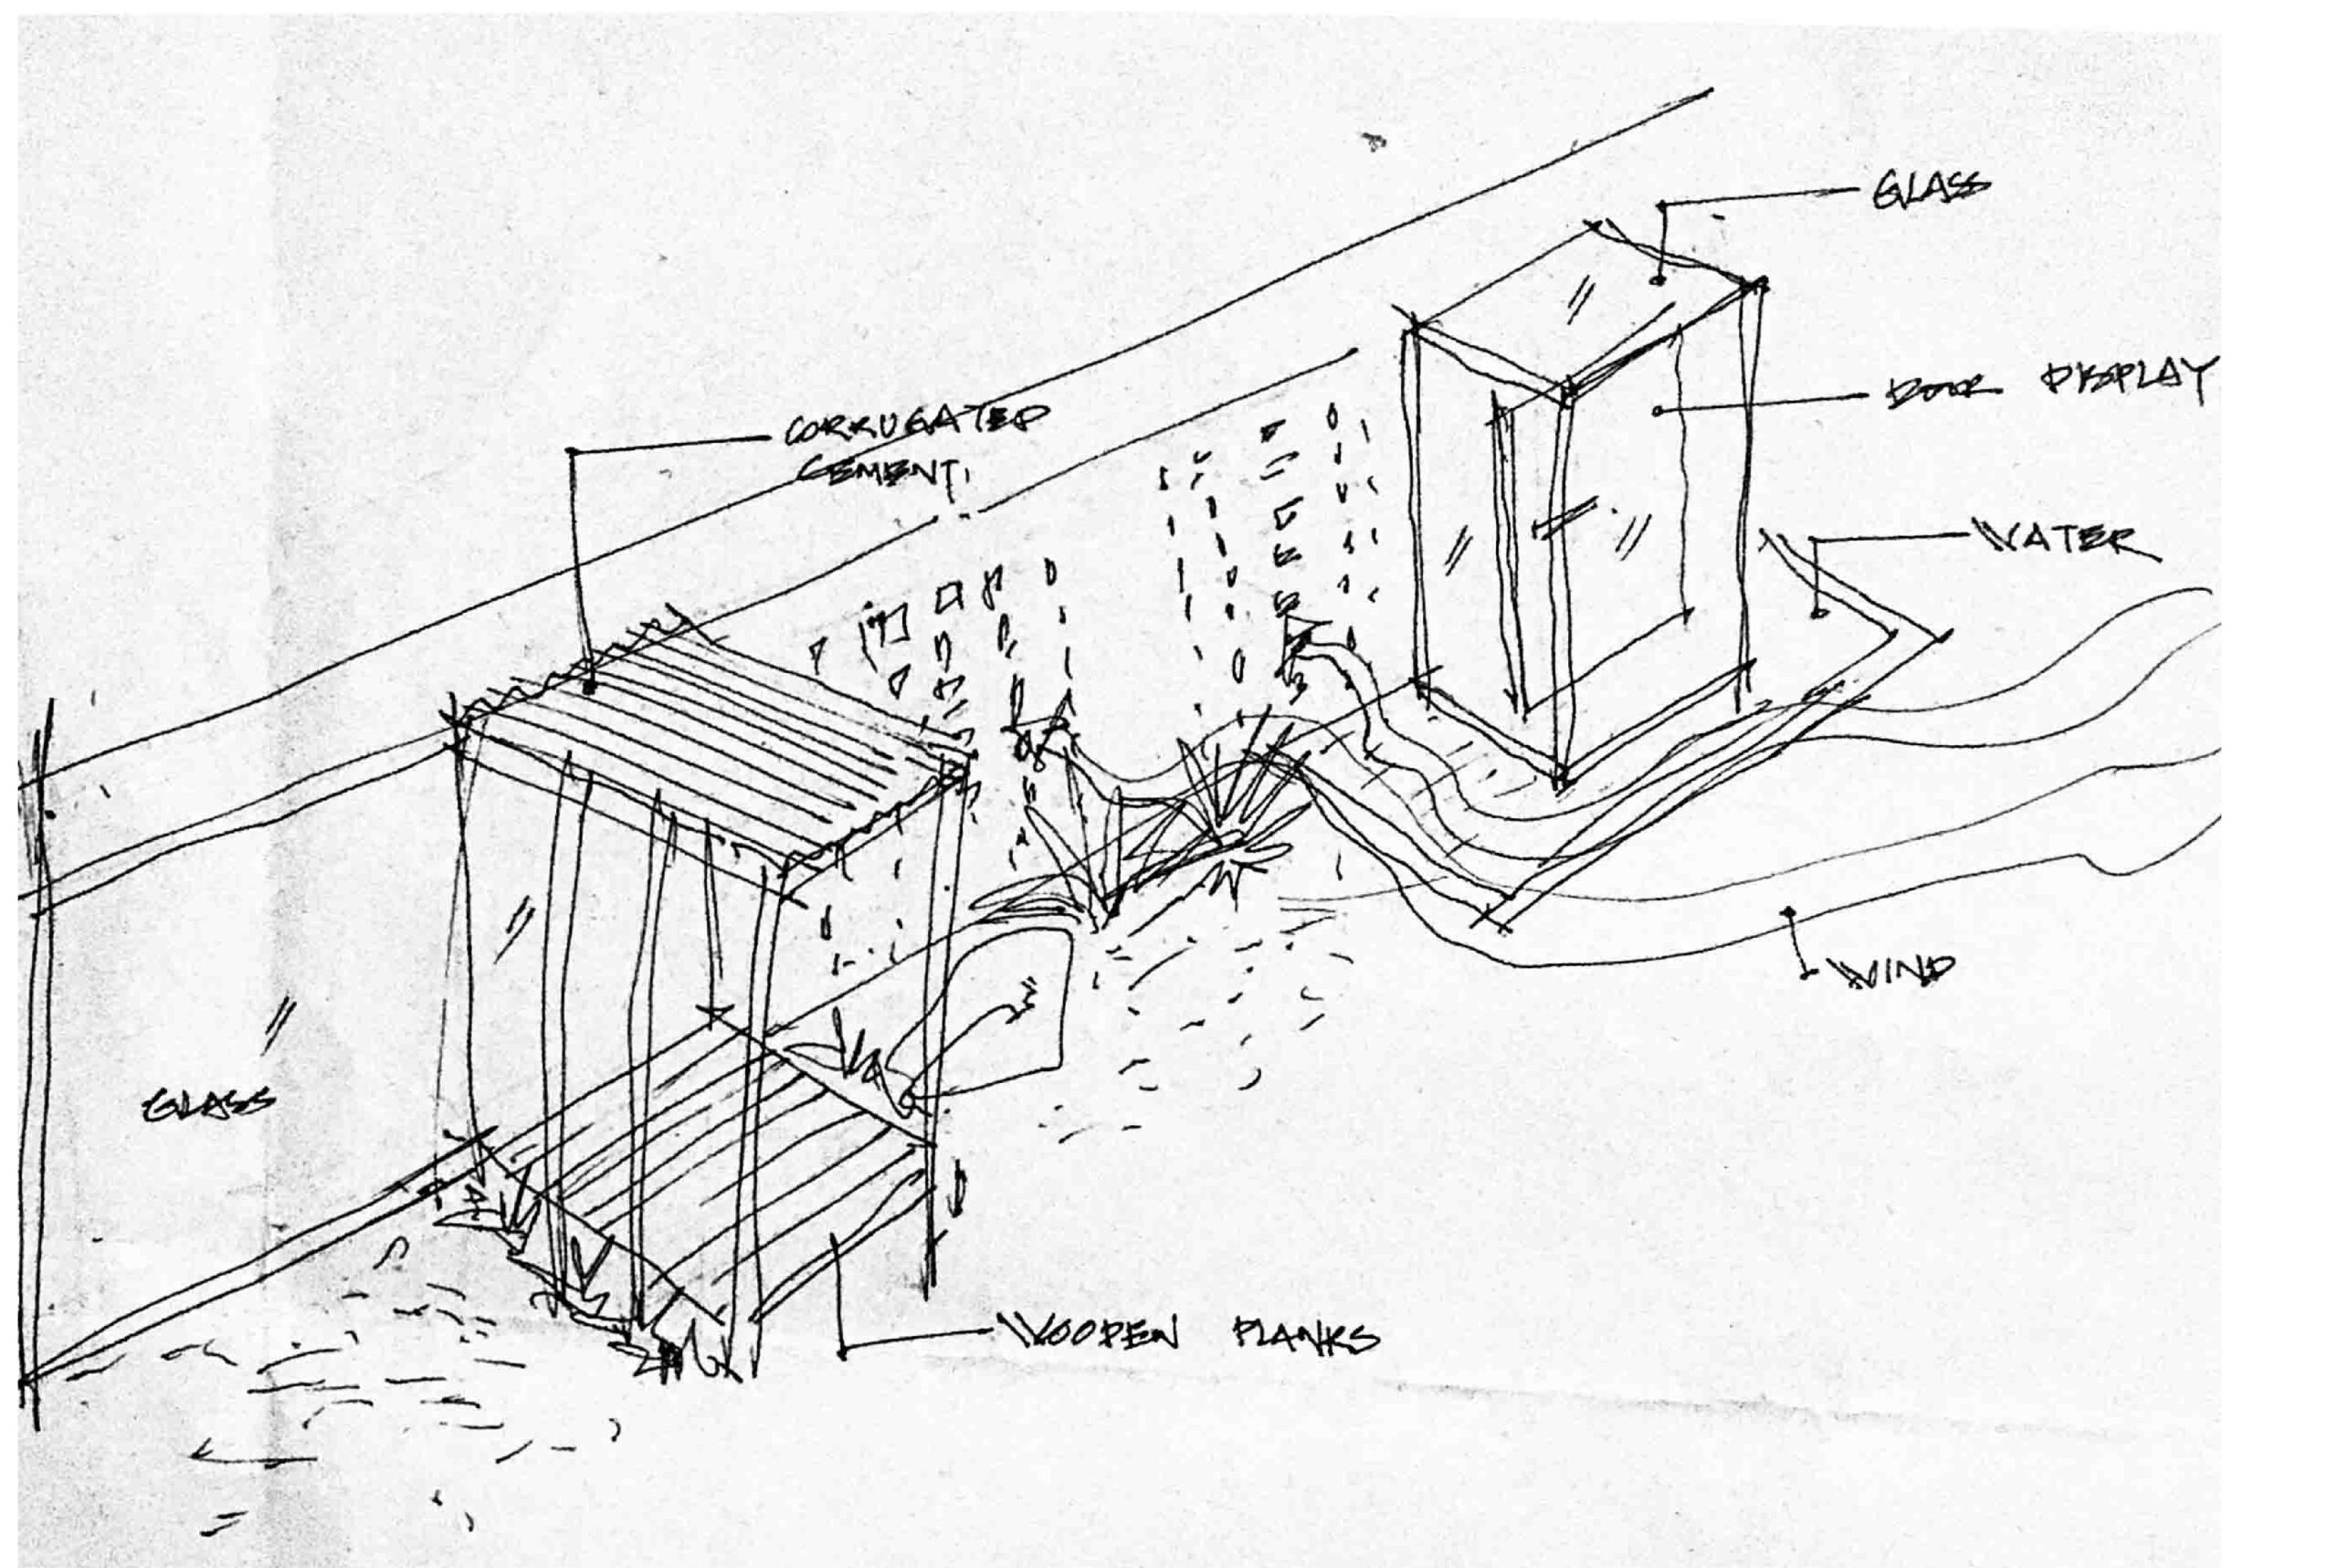 GLASS
DOOR DISPLAY
CORRUGATED
CEMENT
WATER
WIND
GLASS
WOODEN PLANKS